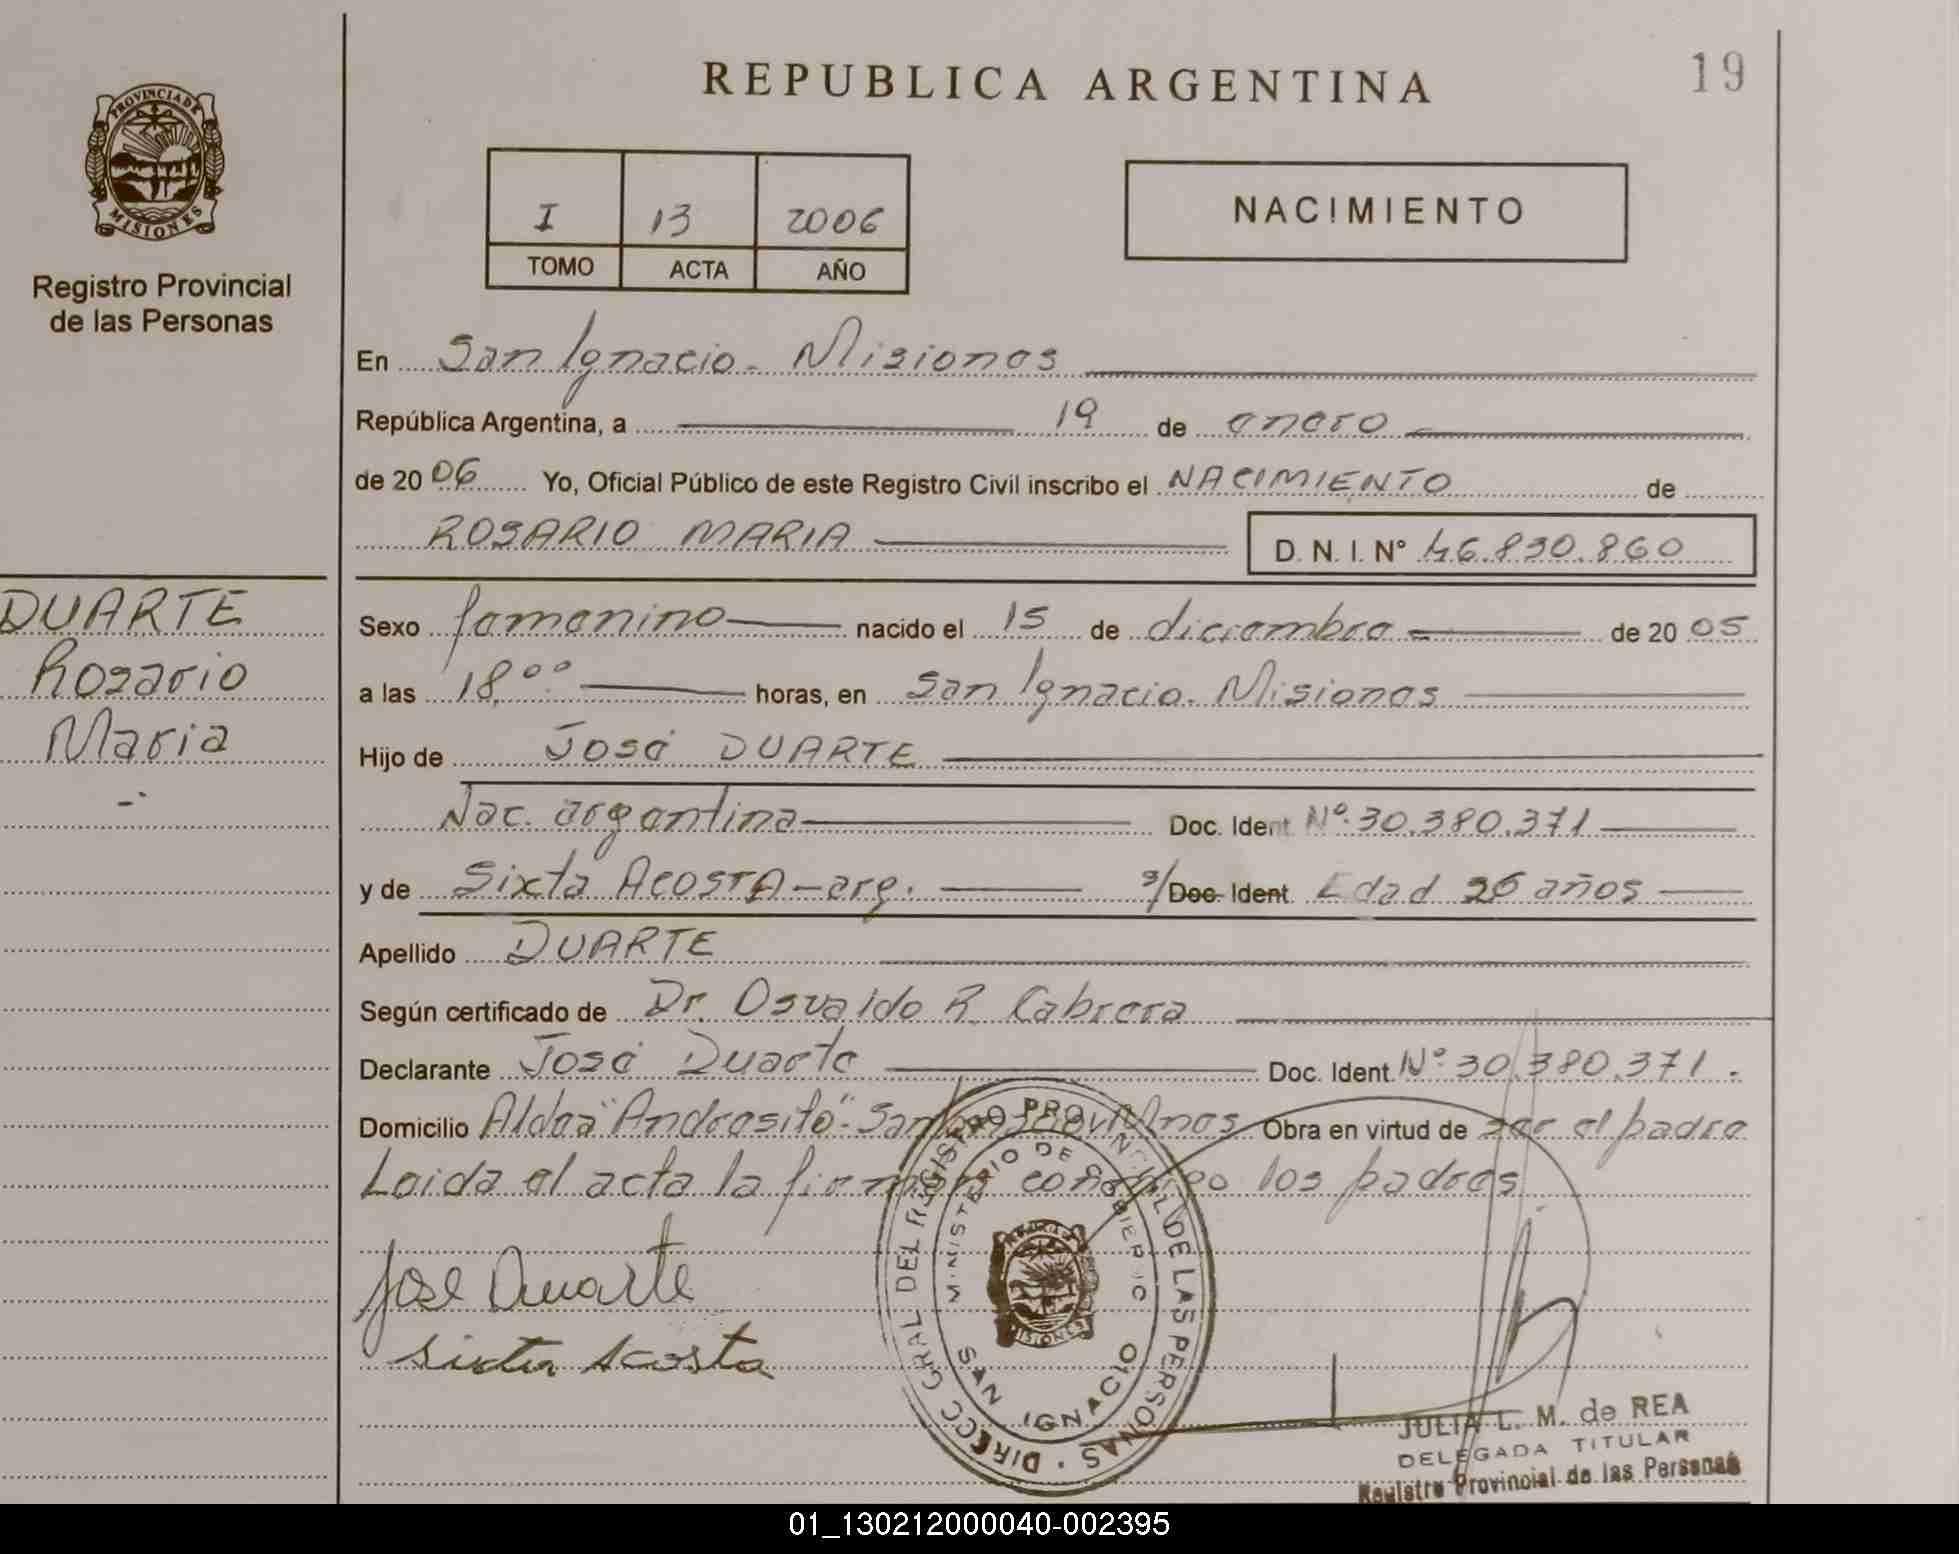 REPUBLICA ARGENTINA
19
PROVINCIA DE
MISIONES
Registro Provincial
de las Personas
I 13 2006
TOMO ACTA AÑO
NACIMIENTO
En San Ignacio - Misiones
República Argentina, a 19 de enero
de 20 06 Yo, Oficial Público de este Registro Civil inscribo el NACIMIENTO de
ROSARIO MARIA D. N. I. N° 46.830.860
DUARTE
Rosario
Maria
Sexo femenino nacido el 15 de diciembre de 20 05
a las 18,00 horas, en San Ignacio - Misiones
Hijo de José DUARTE
Nac. argentina Doc. Ident. Nº 30.380.371
y de Sixta ACOSTA - arg. s/Doc. Ident. Edad 26 años
Apellido DUARTE
Según certificado de Dr. Osvaldo R. Cabrera
Declarante José Duarte Doc. Ident. Nº 30.380.371.
Domicilio Aldea "Andresito" - San Ignacio Mnes Obra en virtud de ser el padre
Leida el acta la firman conmigo los padres
Jose Duarte
Sixta Acosta
DIRECC GRAL DEL REGISTRO PROVINCIAL DE LAS PERSONAS
MINISTERIO DE GOBIERNO
MISIONES
SAN IGNACIO
JULIA L. M. de REA
DELEGADA TITULAR
Registro Provincial de las Personas
01_130212000040-002395